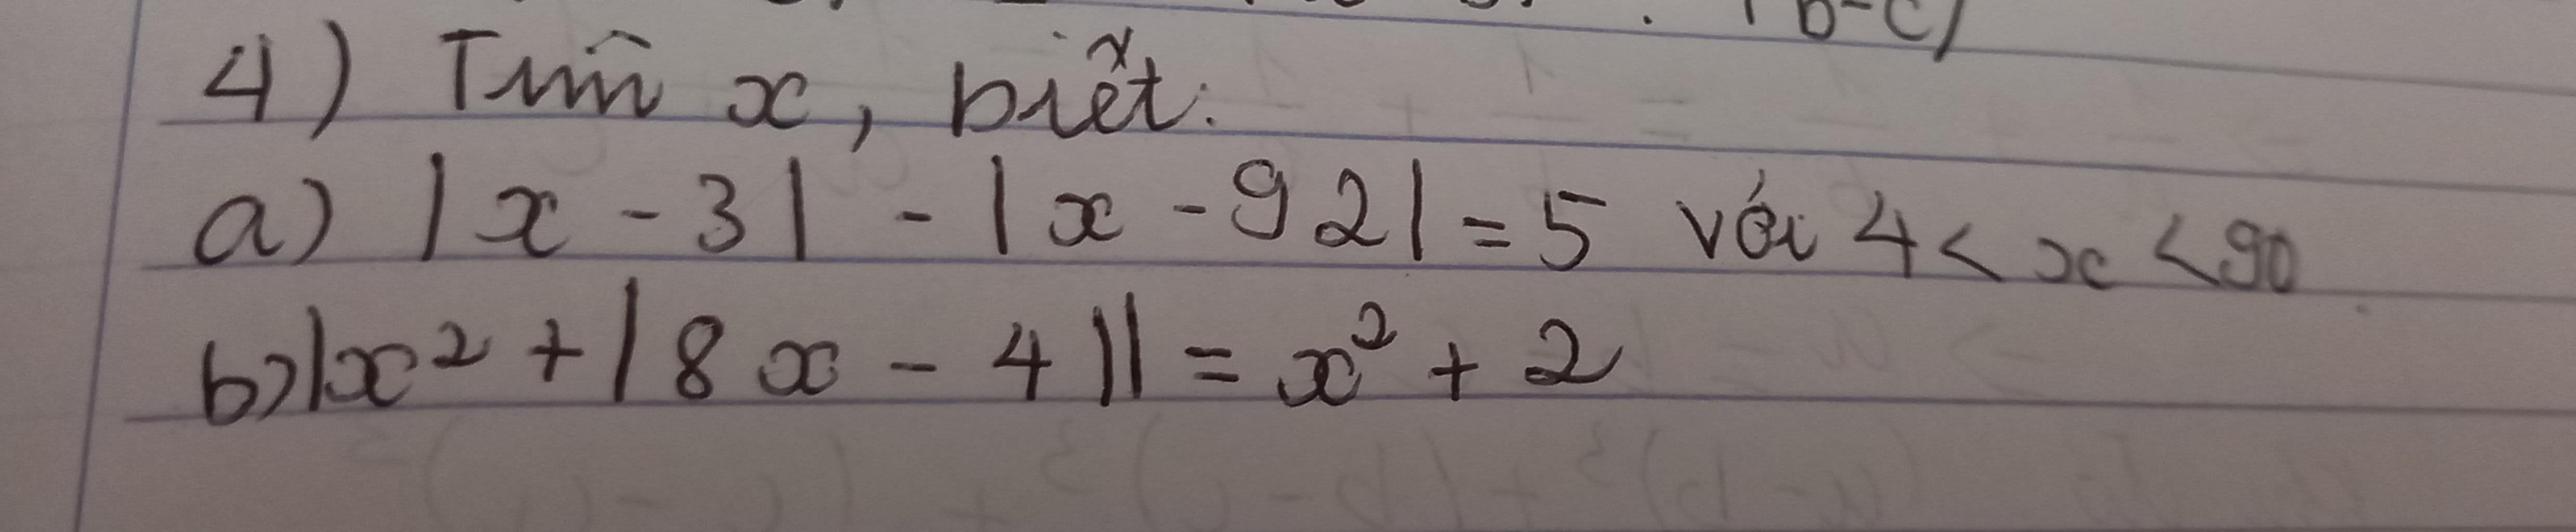 b-c)
4) Tìm x, biết:
a) |x - 3| - |x - 92| = 5 với 4 < x < 90
b) |x² + |8x - 4|| = x² + 2